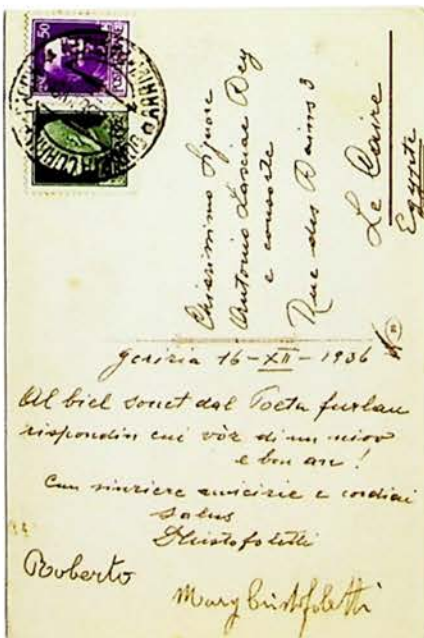 Chiarissimo Signore
Antonio Lasciac Bey
e consorte
Rue des Bains 3
Le Caire
Egypte
50
Gorizia 16-XII-1936
Al biel sonet dal Poeta furlan
rispondin cui vôz di un niov
e bon an!
Cun sinziere amicizie e cordiai
salus
DCristofoletti
Roberto
Mary Cristofoletti